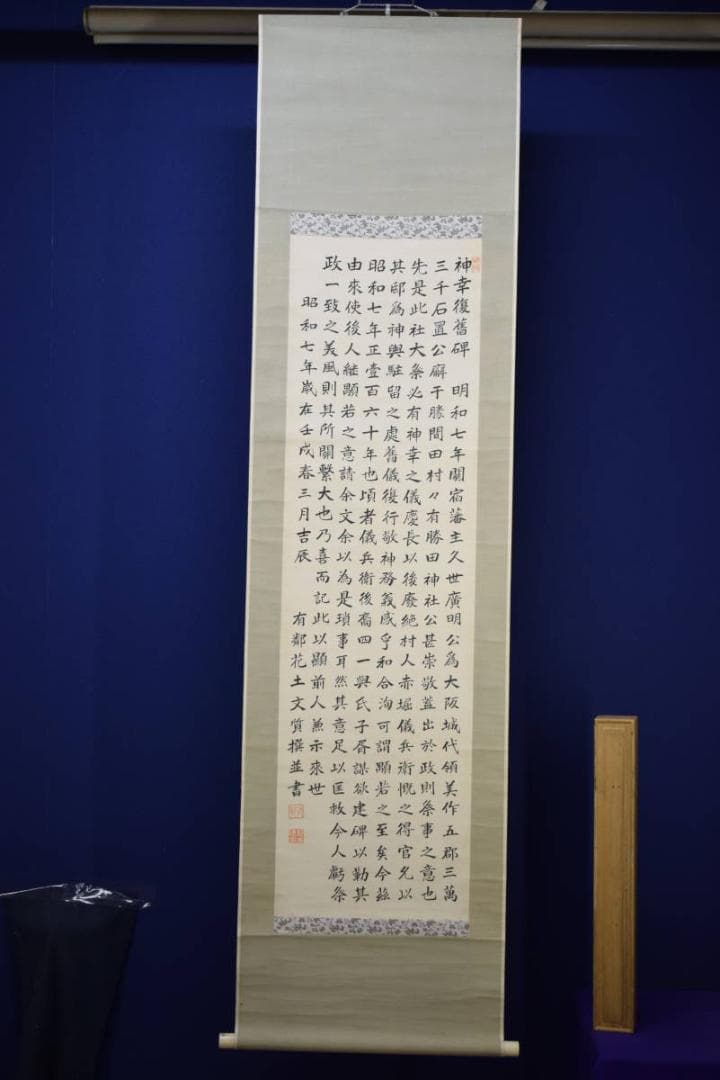 神幸復舊碑 明和七年關宿藩主久世廣明公為大阪城代領美作五郡三萬
三千石置公廨于勝間田村々有勝田神社公甚崇敬蓋出於政則祭事之意也
先是此社大祭必有神幸之儀慶長以後廢絶村人赤堀儀兵衛慨之得官允以
其邸為神輿駐留之處舊儀復行敬神務義感孚和合洵可謂顯若之至矣今茲
昭和七年正壹百六十年也頃者儀兵衛後裔四一與氏子胥謀欲建碑以勒其
由來使後人継顯若之意請余文余以為是瑣事耳然其意足以匡救今人虧祭
政一致之美風則其所關繫大也乃喜而記此以顯前人兼示來世
昭和七年歲在壬戌春三月吉辰 有鄰花土文質撰並書